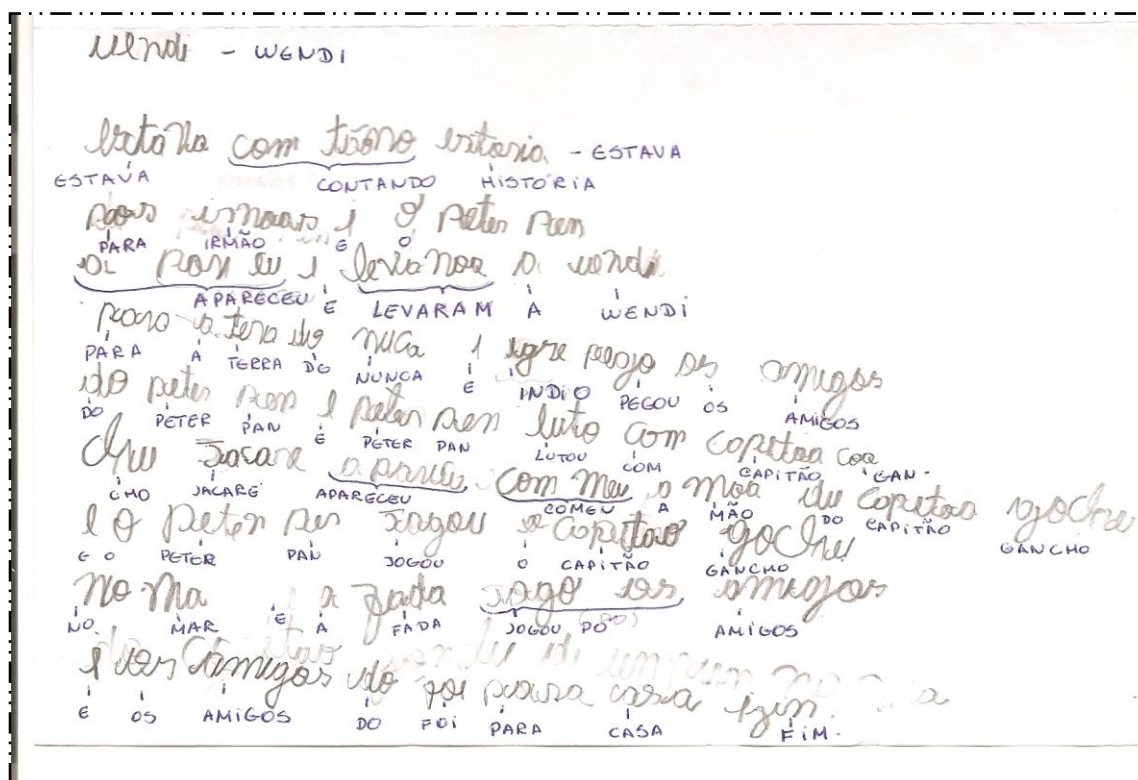 Wendi - WENDI
estava com tãono estaria - ESTAVA
ESTAVA CONTANDO HISTÓRIA
irmaos i O peter pen
PARA IRMÃO E O
i levanoa a wendi
APARECEU E LEVARAM A WENDI
a tera do nuca i pego os amigos
PARA A TERRA DO NUNCA E INDIO PEGOU OS AMIGOS
do peter pen i peter pen luto com capitoa
DO PETER PAN E PETER PAN LUTOU COM CAPITÃO GAN-
chu Jacare apareceu com meu a moa du capitoa goche
CHO JACARÉ APARECEU COMEU A MÃO DO CAPITÃO GANCHO
e O peter pen Jogou o capitao goche
E O PETER PAN JOGOU O CAPITÃO GANCHO
no ma i a fada Jogo os amigos
NO MAR E A FADA JOGOU PÓ AMIGOS
i os amigos do foi para casa fzin.
E OS AMIGOS DO FOI PARA CASA FIM.